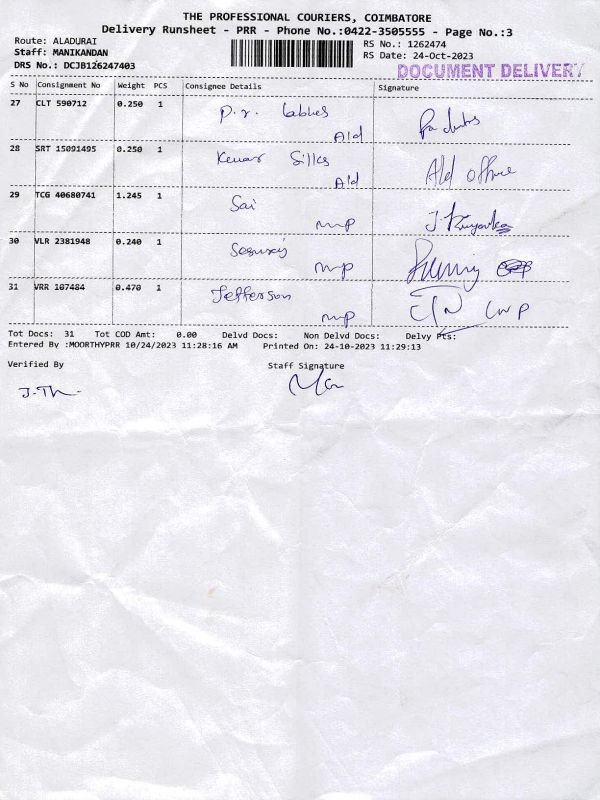 THE PROFESSIONAL COURIERS, COIMBATORE
Delivery Runsheet - PRR - Phone No.:0422-3505555 - Page No.:3
Route: ALADURAI
Staff: MANIKANDAN
DRS No.: DCJB126247403
RS No.: 1262474
RS Date: 24-Oct-2023
DOCUMENT DELIVERY
S No Consignment No Weight PCS Consignee Details Signature
27 CLT 590712 0.250 1
Ald
28 SRT 15091495 0.250 1
Ald Ald office
29 TCG 40680741 1.245 1 Sai
mp
30 VLR 2381948 0.240 1
mp
31 VRR 107484 0.470 1 Jefferson
mp
Tot Docs: 31 Tot COD Amt: 0.00 Delvd Docs: Non Delvd Docs: Delvy Pts:
Entered By :MOORTHYPRR 10/24/2023 11:28:16 AM Printed On: 24-10-2023 11:29:13
Verified By Staff Signature